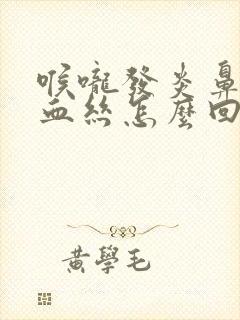 喉嚨發炎鼻
血絲怎麼回
黃學毛